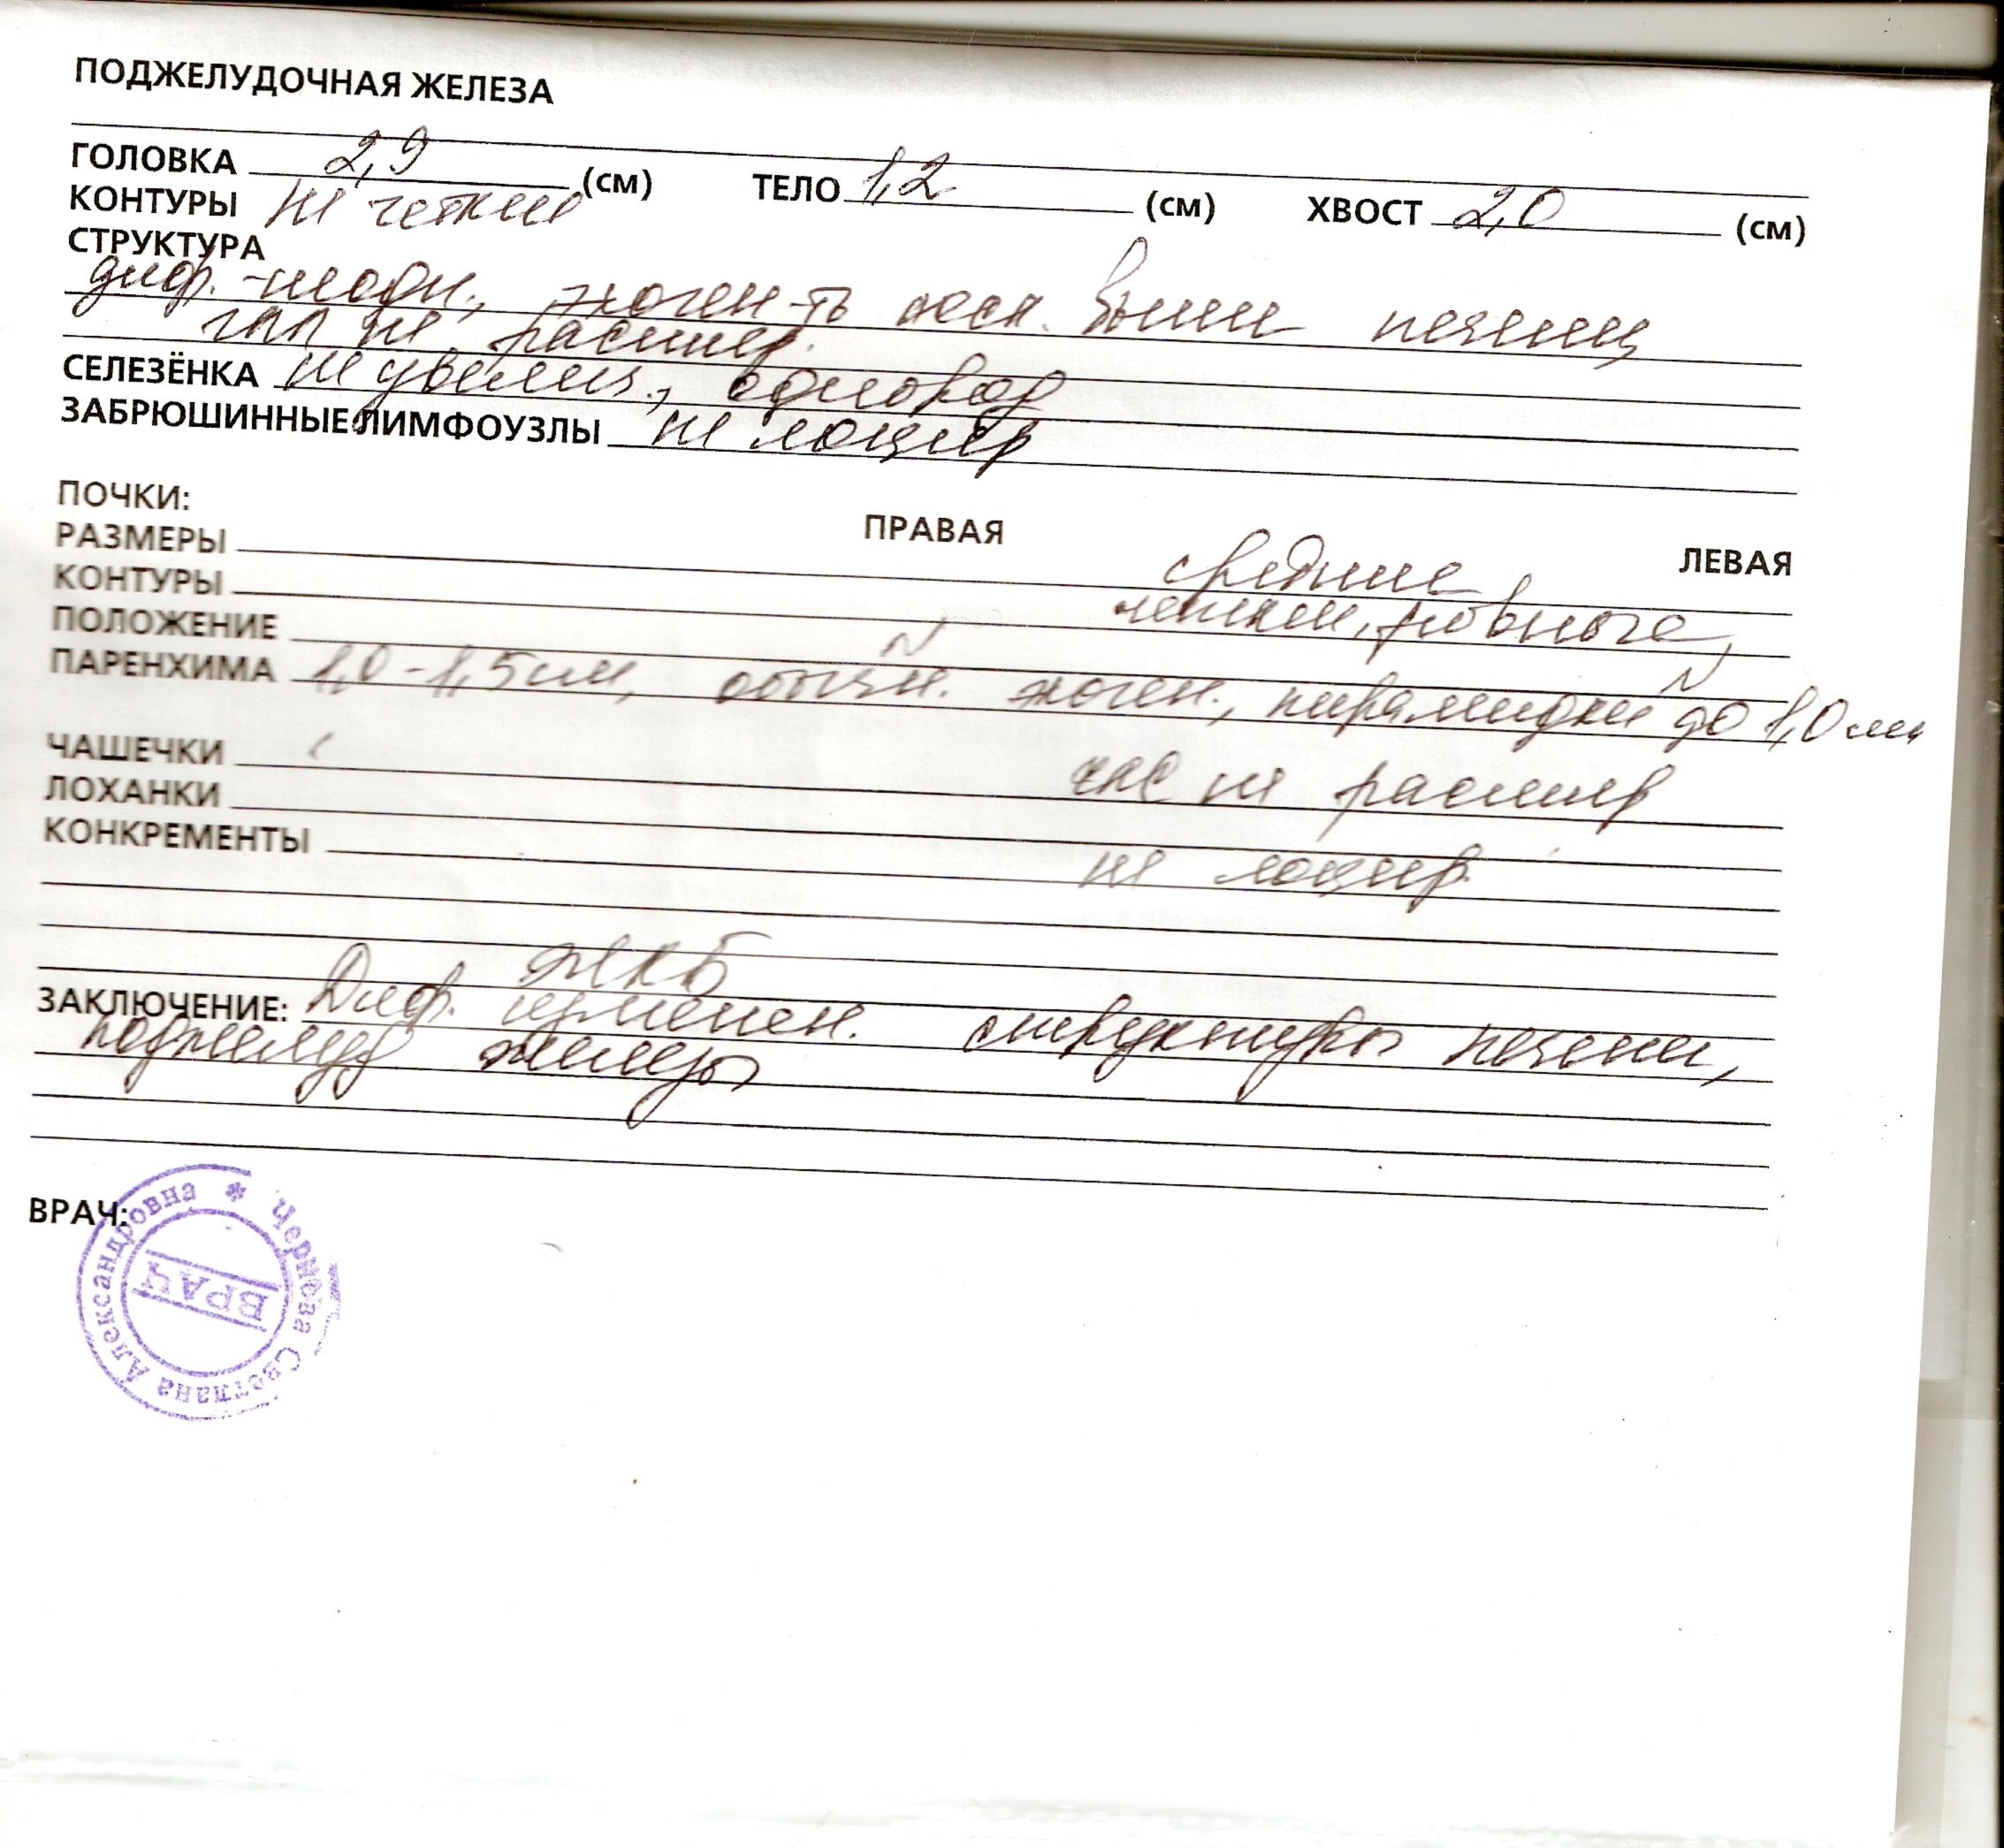 ПОДЖЕЛУДОЧНАЯ ЖЕЛЕЗА
ГОЛОВКА 2,9 (см) ТЕЛО 1,2 (см) ХВОСТ 2,0 (см)
КОНТУРЫ не четкие
СТРУКТУРА
диф.-неодн., эхоген-ть неск. выше печени
ГПП не расшир.
СЕЛЕЗЁНКА не увелич., однород
ЗАБРЮШИННЫЕ ЛИМФОУЗЛЫ не лоцир
ПОЧКИ: ПРАВАЯ ЛЕВАЯ
РАЗМЕРЫ средние
КОНТУРЫ четкие, ровные,
ПОЛОЖЕНИЕ N N
ПАРЕНХИМА 1,0-1,5см, обычн. эхоген., пирамидки до 1,0 см
ЧАШЕЧКИ
ЛОХАНКИ ЧЛС не расшир
КОНКРЕМЕНТЫ не лоцир.
ЖКБ
ЗАКЛЮЧЕНИЕ: Диф. изменен. структуры печени,
поджелуд железы
ВРАЧ:
Чернева Светлана Александровна *
ВРАЧ